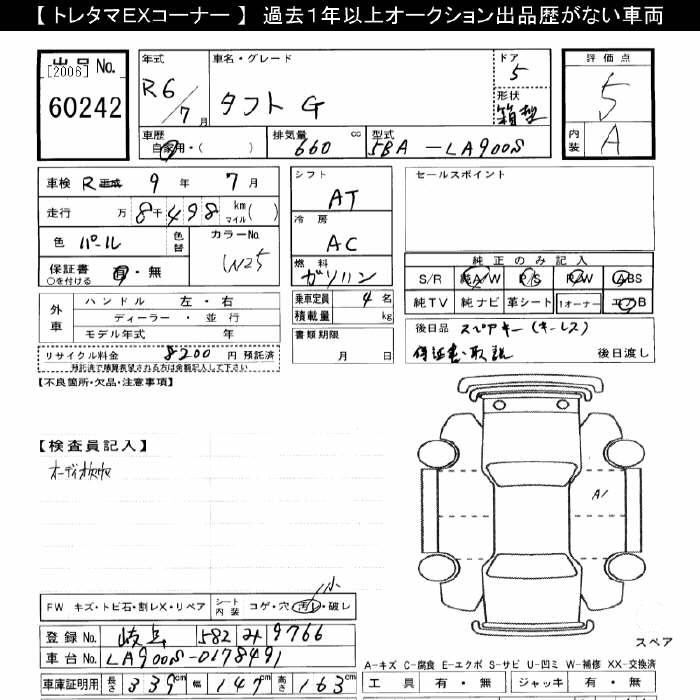 【 トレタマEXコーナー 】 過去1年以上オークション出品歴がない車両
出品 No. [2006]
60242
年式 R6/7月
車名・グレード タフト G
ドア 5
形状 箱型
評価点 5
内装 A
車歴 自家用・( )
排気量 660 cc
型式 5BA-LA900S
車検 R平成 9年 7月
走行 万8千498 km マイル( )
色 パール 色替
カラーNo. W25
保証書 有・無 ○を付ける
シフト AT
冷房 AC
燃料 ガソリン
乗車定員 4名
積載量 kg
書類期限 月 日
セールスポイント
純正のみ記入
S/R 純A/W P/S P/W ABS
純TV 純ナビ 革シート 1オーナー エアB
後日品 スペアキー(キーレス)
保証書・取説 後日渡し
外車 ハンドル 左・右
ディーラー・並行
モデル年式 年
リサイクル料金 8200 円 預託済
預託済で車両購入希望される方は金額記入して下さい
【不良箇所・欠品・注意事項】
【検査員記入】
オーディオ欠
A1
FW キズ・トビ石・割レX・リペア シート内装 コゲ・穴・汚レ・破レ 小
登録No. 岐阜 582 み 9766
車台No. LA900S-0178491
車庫証明用 長さ 339cm 幅 147cm 高さ 163cm
スペア
A-キズ C-腐食 E-エクボ S-サビ U-凹ミ W-補修 XX-交換済
工具 有・無 ジャッキ 有・無